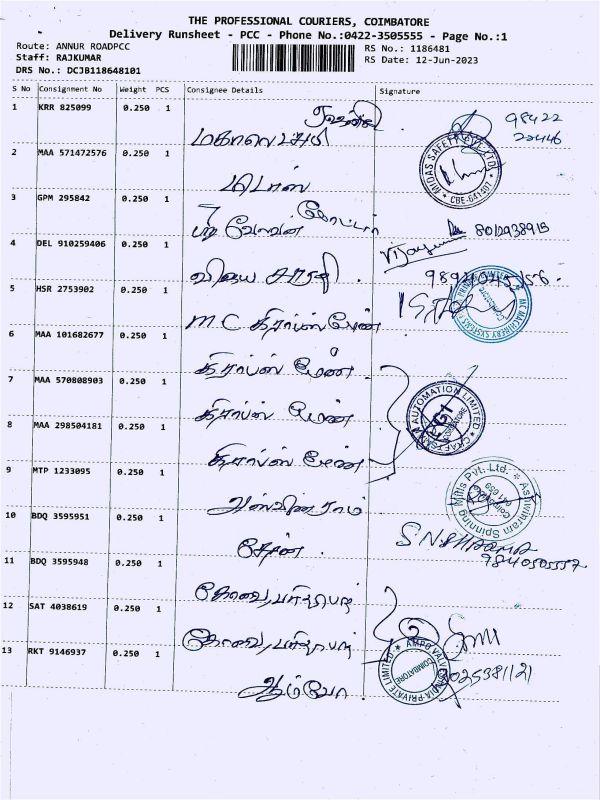 THE PROFESSIONAL COURIERS, COIMBATORE
Delivery Runsheet - PCC - Phone No.:0422-3505555 - Page No.:1
Route: ANNUR ROADPCC RS No.: 1186481
Staff: RAJKUMAR RS Date: 12-Jun-2023
DRS No.: DCJB118648101
S No Consignment No Weight PCS Consignee Details Signature
1 KRR 825099 0.250 1
98422
22446
மகாலெட்சுமி
2 MAA 571472576 0.250 1
MIDAS SAFETY PVT LTD CBE-641407
மிடாஸ்
3 GPM 295842 0.250 1
8012938915
4 DEL 910259406 0.250 1
விஜய சாரதி
5 HSR 2753902 0.250 1
M C கிராப்ஸ் மேன்
MC MACHINERY SYSTEMS Coimbatore
6 MAA 101682677 0.250 1
கிராப்ஸ் மேன்
7 MAA 570808903 0.250 1
கிராப்ஸ் மேன்
AUTOMATION LIMITED
8 MAA 298504181 0.250 1
கிராப்ஸ் மேன்
9 MTP 1233095 0.250 1
Ashwinram Spinning Mills Pvt. Ltd. Coimbatore 641 659
அஸ்வின்ராம்
10 BDQ 3595951 0.250 1
S.N. SHARMA
9840505557
சேரன்
11 BDQ 3595948 0.250 1
12 SAT 4038619 0.250 1
13 RKT 9146937 0.250 1
AMPO VALVES INDIA PRIVATE LIMITED COIMBATORE
ஆம்போ